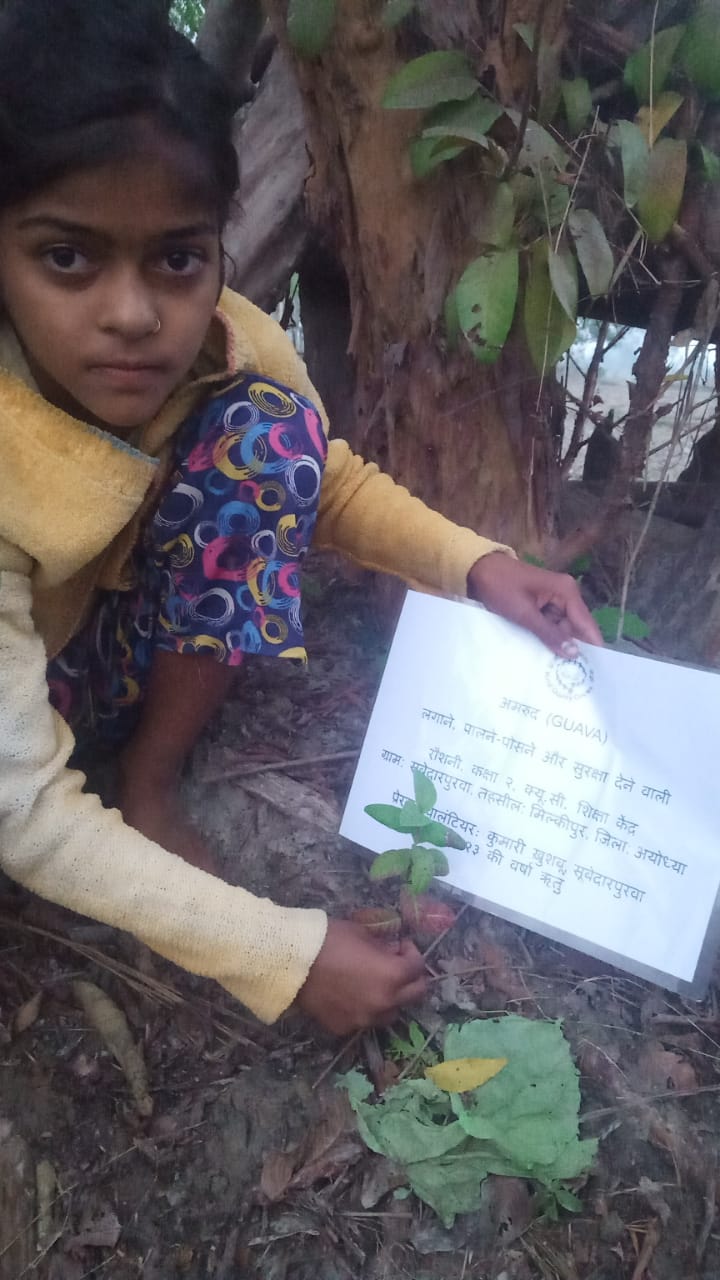 अमरुद (GUAVA)
लगाने, पालने-पोसने और सुरक्षा देने वाली
रौशनी, कक्षा २, क्यू.सी. शिक्षा केंद्र
ग्राम: सूबेदारपुरवा, तहसील: मिल्कीपुर, जिला: अयोध्या
कुमारी खुशबू, सूबेदारपुरवा
की वर्षा ऋतु